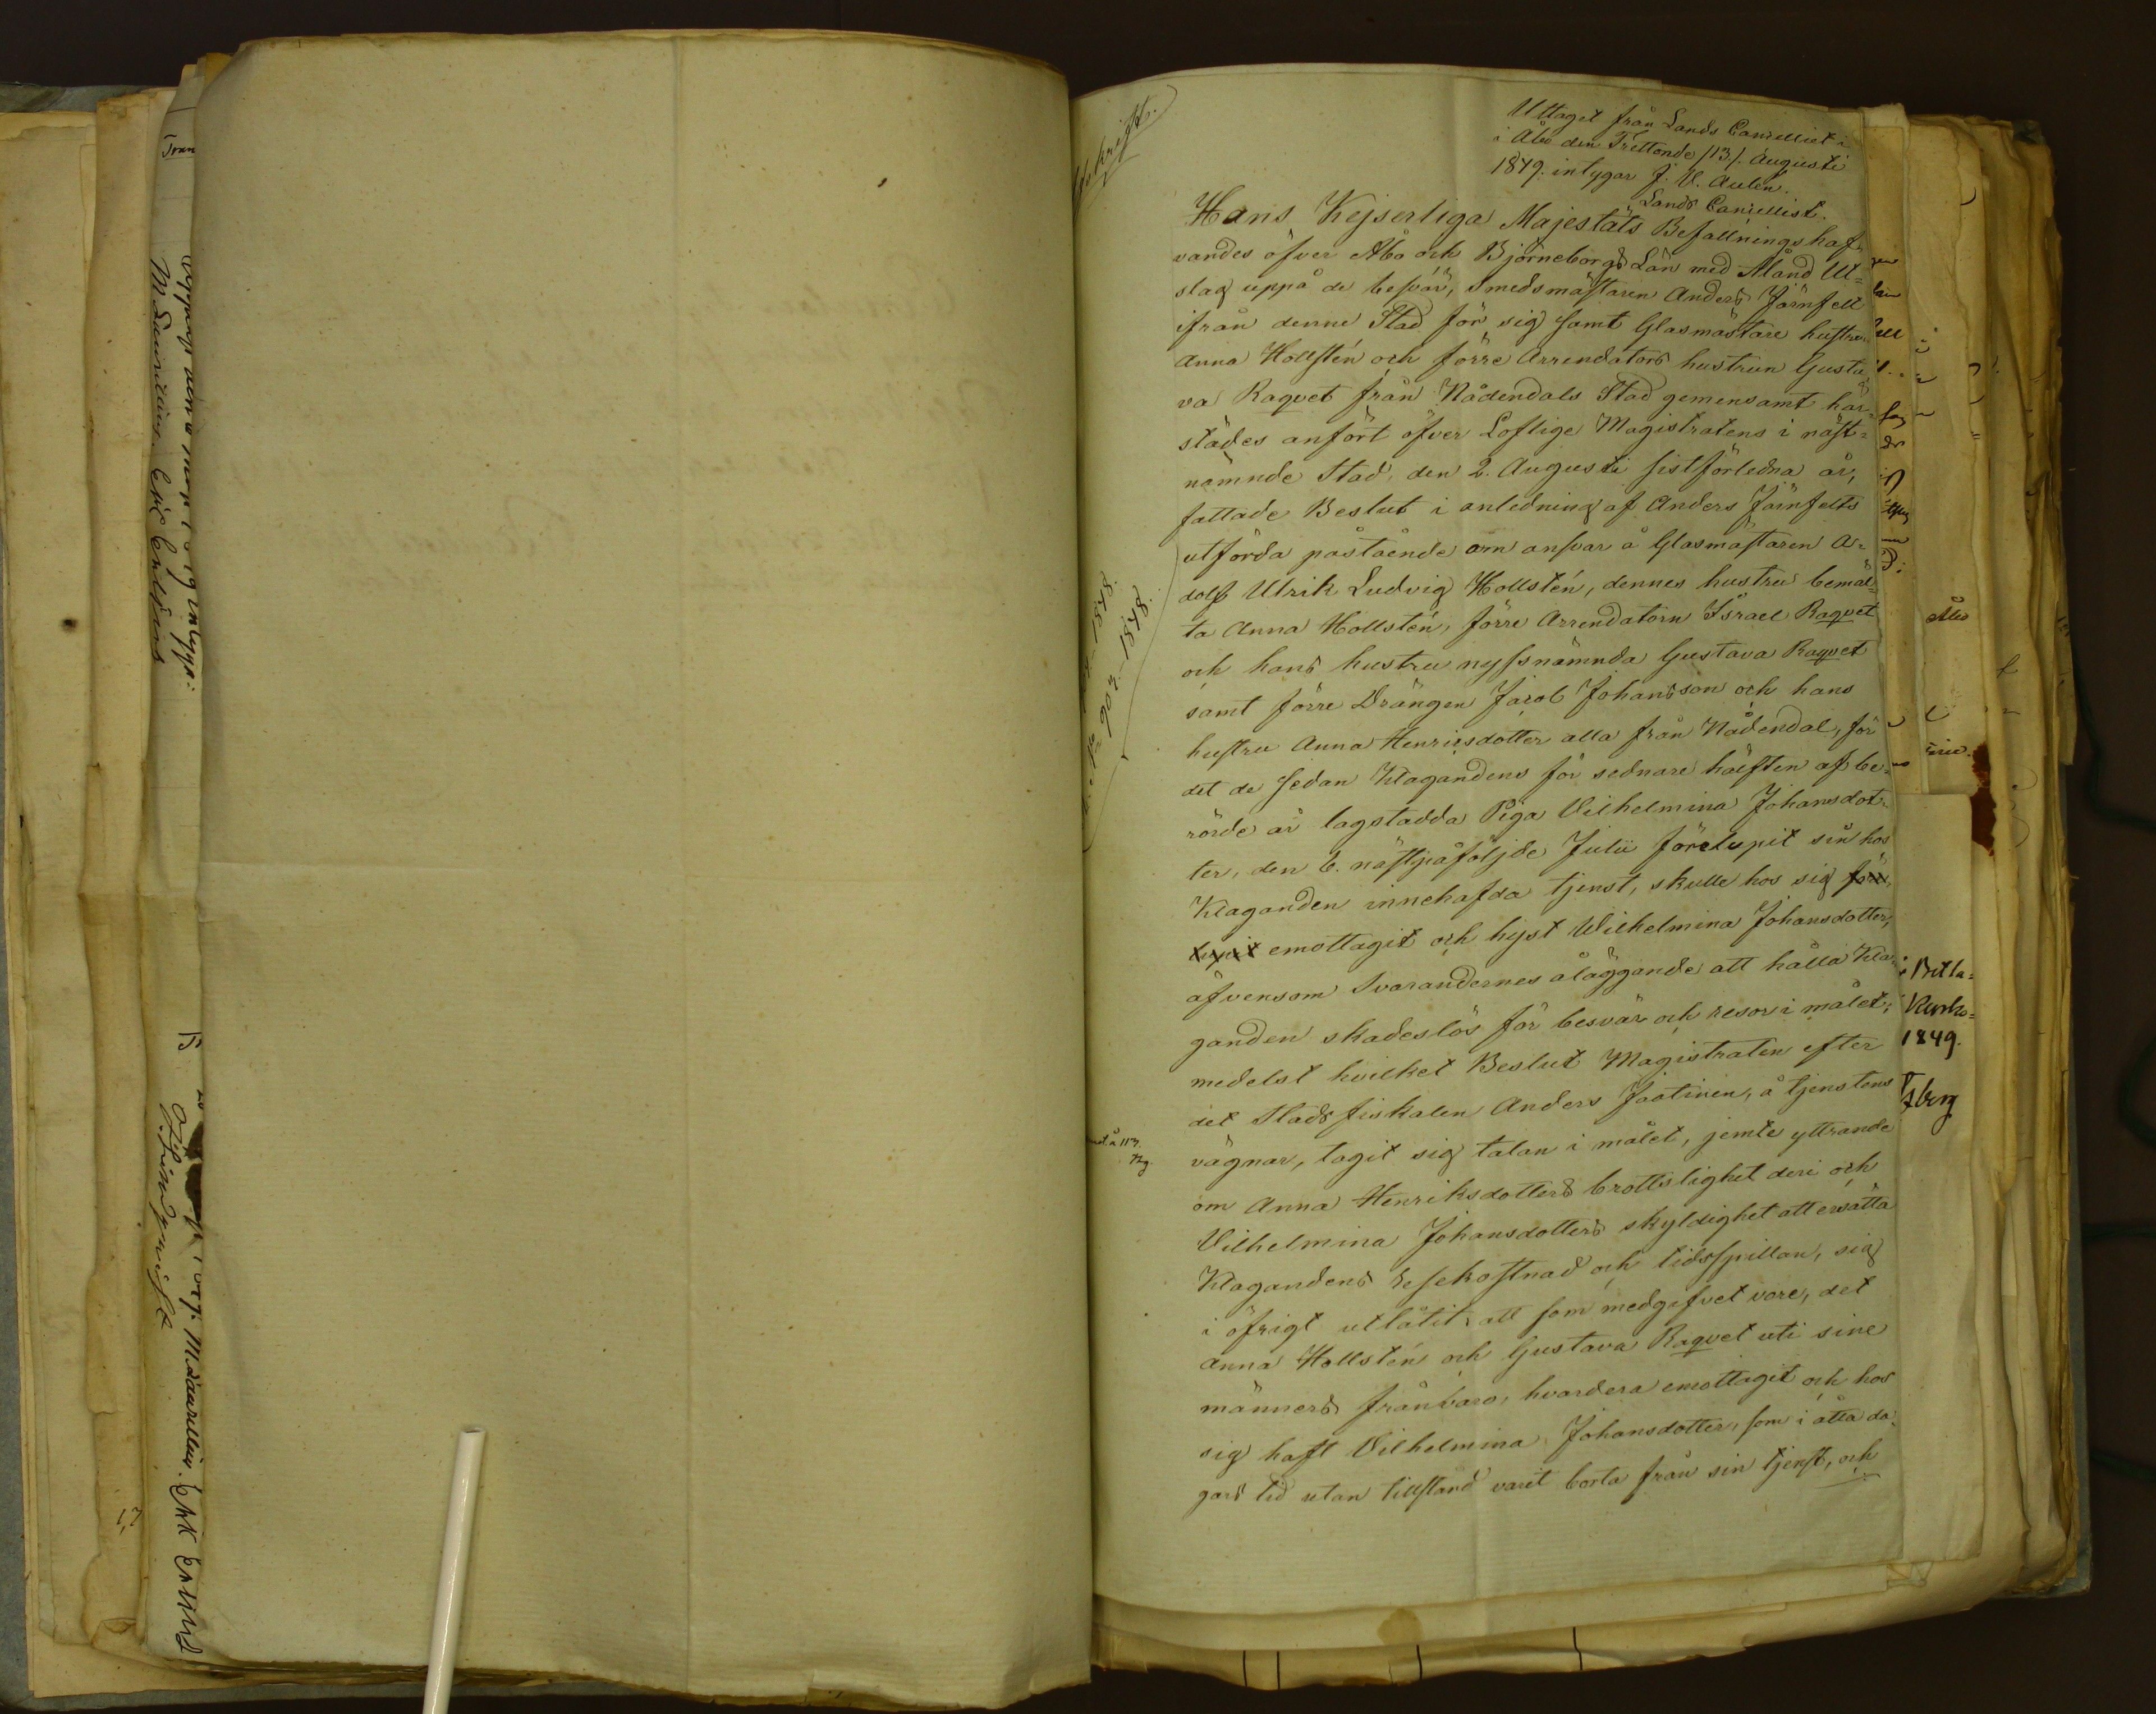 Afskrift.
Uttaget från Lands Cancelliet i
i Åbo den Trettonde /13/. Augusti
1849. intygar J. V. Aulén.
Lands Cancellist.
Hans Kejserliga Majestäts Befallningshaf-
vandes öfver Åbo och Björneborgs Län med Åland Ut-
slag uppå de besvär, Smedsmästaren Anders Järnfelt
ifrån denne Stad för sig samt Glasmästare hustru
Anna Hollstén och förre Arrendators hustrun Gusta-
va Raqvet från Nådendals Stad gemensamt här-
städes anfört öfver Loflige Magistratens i näst-
nämnde Stad, den 2. Augusti sistförledna år,
fattade Beslut i anledning af Anders Järnfelts
utförda påstående om ansvar å Glasmästaren A-
dolf Ulrik Ludvig Hollstén, dennes hustru bemäl-
ta Anna Hollstén, förre Arrendatorn Israel Raqvet
och hans hustru nyssnämnda Gustava Raqvet
samt förre Drängen Jacob Johansson och hans
hustru Anna Henricsdotter alla från Nådendal, för
det de sedan Klagandens för sednare hälften af be-
rörde år lagstadda Piga Vilhelmina Johansdot-
ter, den 6. nästpåföljde Julii förelupit sin hos
Klaganden innehafda tjenst, skulle hos sig före-
lupit emottagit och hyst Wilhelmina Johansdotter,
äfvensom Svarandernes åläggande att hålla Kla-
ganden skadeslös för besvär och resor i målet;
medelst hvilket Beslut Magistraten efter
det Stads fiskalen Anders Jaatinen, å tjenstens
vägnar, tagit sig talan i målet, jemte yttrande
om Anna Henriksdotters brottslighet deri och
Vilhelmina Johansdotters skyldighet att ersätta
Klagandens resekostnad och tidsspillan, sig
i öfrigt utlåtit, att som medgifvet vore, det
Anna Hollstén och Gustava Raqvet uti sine
männers frånvaro, hvardera emottagit och hos
sig haft Vilhelmina Johansdotter, som i åtta da-
gars tid utan tillstånd varit borta från sin tjenst, och
1848.
1848.
Åbo
1849.